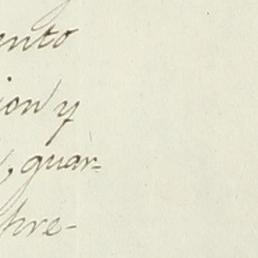 ento
ion y
, guar-
pre-